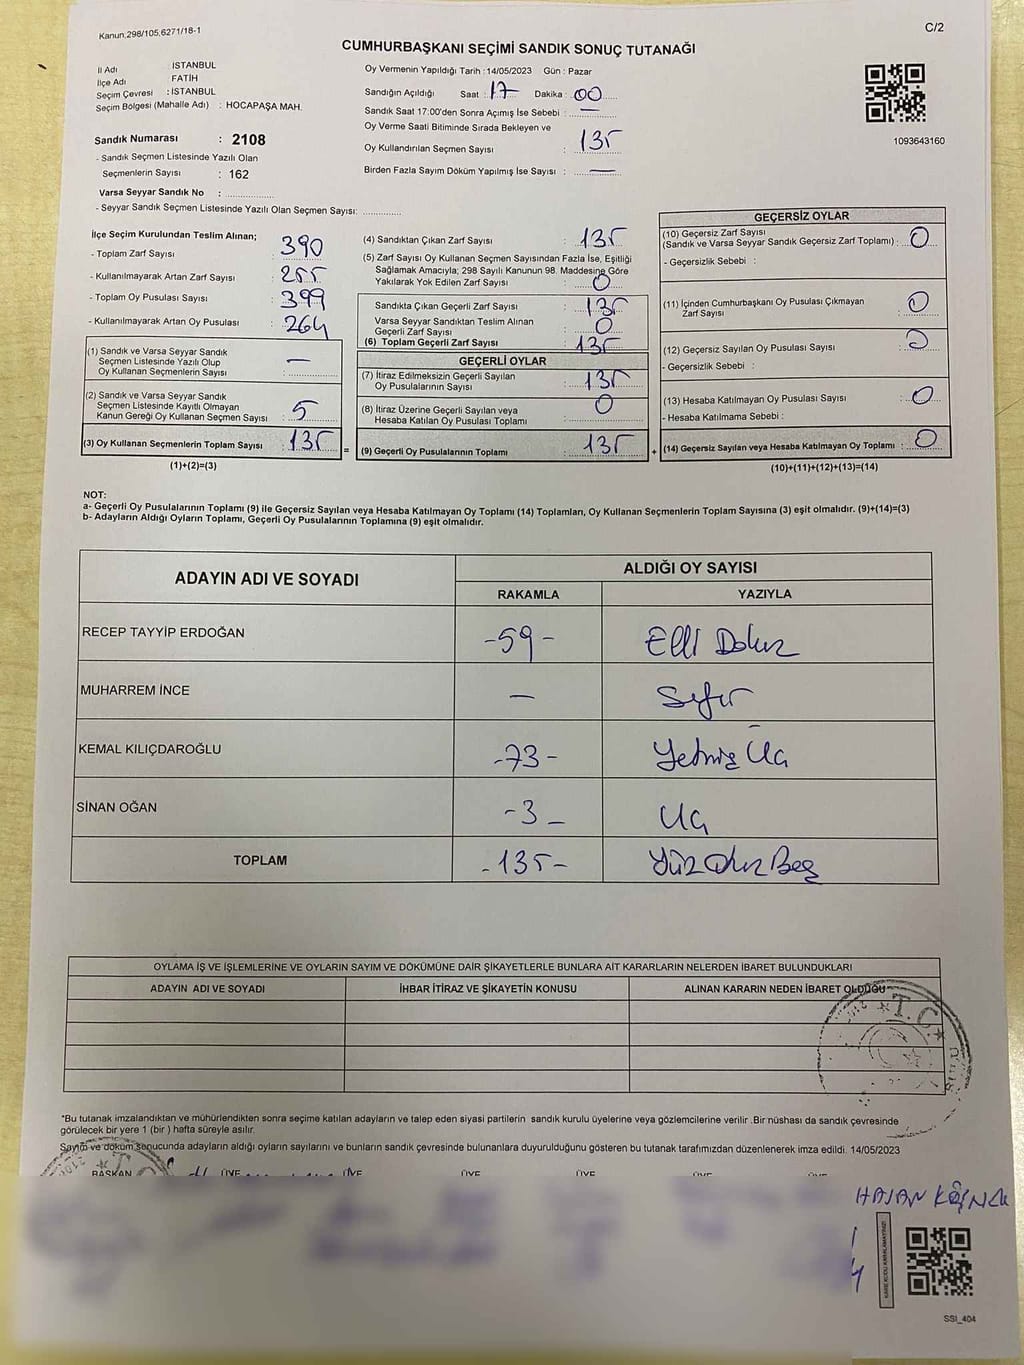 Kanun.298/105,6271/18-1
C/2
CUMHURBAŞKANI SEÇİMİ SANDIK SONUÇ TUTANAĞI
İl Adı : İSTANBUL
İlçe Adı : FATİH
Seçim Çevresi : İSTANBUL
Seçim Bölgesi (Mahalle Adı) : HOCAPAŞA MAH.
Sandık Numarası : 2108
- Sandık Seçmen Listesinde Yazılı Olan
Seçmenlerin Sayısı : 162
Varsa Seyyar Sandık No :
- Seyyar Sandık Seçmen Listesinde Yazılı Olan Seçmen Sayısı:
Oy Vermenin Yapıldığı Tarih :14/05/2023 Gün : Pazar
Sandığın Açıldığı Saat : 17 Dakika : 00
Sandık Saat 17:00'den Sonra Açımış İse Sebebi : —
Oy Verme Saati Bitiminde Sırada Bekleyen ve
Oy Kullandırılan Seçmen Sayısı : 135
Birden Fazla Sayım Döküm Yapılmış İse Sayısı : —
1093643160
İlçe Seçim Kurulundan Teslim Alınan;
- Toplam Zarf Sayısı : 390
- Kullanılmayarak Artan Zarf Sayısı : 255
- Toplam Oy Pusulası Sayısı : 399
- Kullanılmayarak Artan Oy Pusulası : 264
(1) Sandık ve Varsa Seyyar Sandık
Seçmen Listesinde Yazılı Olup
Oy Kullanan Seçmenlerin Sayısı : —
(2) Sandık ve Varsa Seyyar Sandık
Seçmen Listesinde Kayıtlı Olmayan
Kanun Gereği Oy Kullanan Seçmen Sayısı : 5
(3) Oy Kullanan Seçmenlerin Toplam Sayısı : 135
(1)+(2)=(3)
(4) Sandıktan Çıkan Zarf Sayısı : 135
(5) Zarf Sayısı Oy Kullanan Seçmen Sayısından Fazla İse, Eşitliği
Sağlamak Amacıyla; 298 Sayılı Kanunun 98. Maddesine Göre
Yakılarak Yok Edilen Zarf Sayısı : 0
Sandıkta Çıkan Geçerli Zarf Sayısı : 135
Varsa Seyyar Sandıktan Teslim Alınan
Geçerli Zarf Sayısı : 0
(6) Toplam Geçerli Zarf Sayısı : 135
GEÇERLİ OYLAR
(7) İtiraz Edilmeksizin Geçerli Sayılan
Oy Pusulalarının Sayısı : 135
(8) İtiraz Üzerine Geçerli Sayılan veya
Hesaba Katılan Oy Pusulası Toplamı : 0
= (9) Geçerli Oy Pusulalarının Toplamı : 135 +
GEÇERSİZ OYLAR
(10) Geçersiz Zarf Sayısı
(Sandık ve Varsa Seyyar Sandık Geçersiz Zarf Toplamı) : 0
- Geçersizlik Sebebi :
(11) İçinden Cumhurbaşkanı Oy Pusulası Çıkmayan
Zarf Sayısı : 0
(12) Geçersiz Sayılan Oy Pusulası Sayısı : 0
- Geçersizlik Sebebi :
(13) Hesaba Katılmayan Oy Pusulası Sayısı : 0
- Hesaba Katılmama Sebebi :
(14) Geçersiz Sayılan veya Hesaba Katılmayan Oy Toplamı : 0
(10)+(11)+(12)+(13)=(14)
NOT:
a- Geçerli Oy Pusulalarının Toplamı (9) ile Geçersiz Sayılan veya Hesaba Katılmayan Oy Toplamı (14) Toplamları, Oy Kullanan Seçmenlerin Toplam Sayısına (3) eşit olmalıdır. (9)+(14)=(3)
b- Adayların Aldığı Oyların Toplamı, Geçerli Oy Pusulalarının Toplamına (9) eşit olmalıdır.
ADAYIN ADI VE SOYADI
ALDIĞI OY SAYISI
RAKAMLA YAZIYLA
RECEP TAYYİP ERDOĞAN -59- Elli Dokuz
MUHARREM İNCE — Sıfır
KEMAL KILIÇDAROĞLU -73- Yetmiş Üç
SİNAN OĞAN -3- Üç
TOPLAM -135- Yüz Otuz Beş
OYLAMA İŞ VE İŞLEMLERİNE VE OYLARIN SAYIM VE DÖKÜMÜNE DAİR ŞİKAYETLERLE BUNLARA AİT KARARLARIN NELERDEN İBARET BULUNDUKLARI
ADAYIN ADI VE SOYADI İHBAR İTİRAZ VE ŞİKAYETİN KONUSU ALINAN KARARIN NEDEN İBARET OLDUĞU
T.C.
*Bu tutanak imzalandıktan ve mühürlendikten sonra seçime katılan adayların ve talep eden siyasi partilerin sandık kurulu üyelerine veya gözlemcilerine verilir .Bir nüshası da sandık çevresinde
görülecek bir yere 1 (bir ) hafta süreyle asılır.
Sayım ve döküm sonucunda adayların aldığı oyların sayılarını ve bunların sandık çevresinde bulunanlara duyurulduğunu gösteren bu tutanak tarafımızdan düzenlenerek imza edildi. 14/05/2023
BAŞKAN ÜYE ÜYE ÜYE ÜYE ÜYE ÜYE
HASAN
KARE KODU KARALAMAYINIZ!
SSI_404